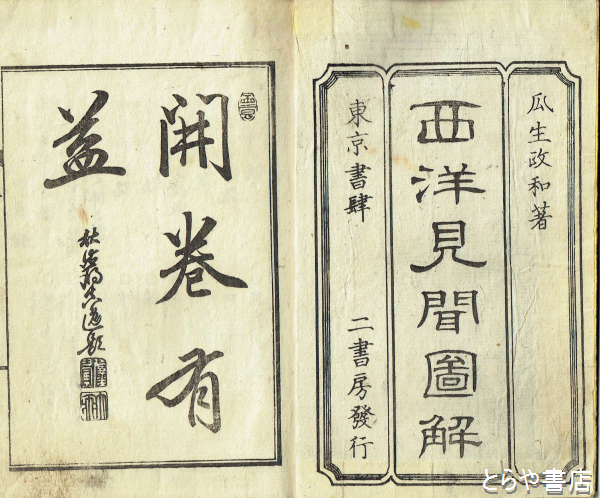 瓜生政和著
西洋見聞圖解
東京書肆
二書房發行
開卷有
益
とらや書店